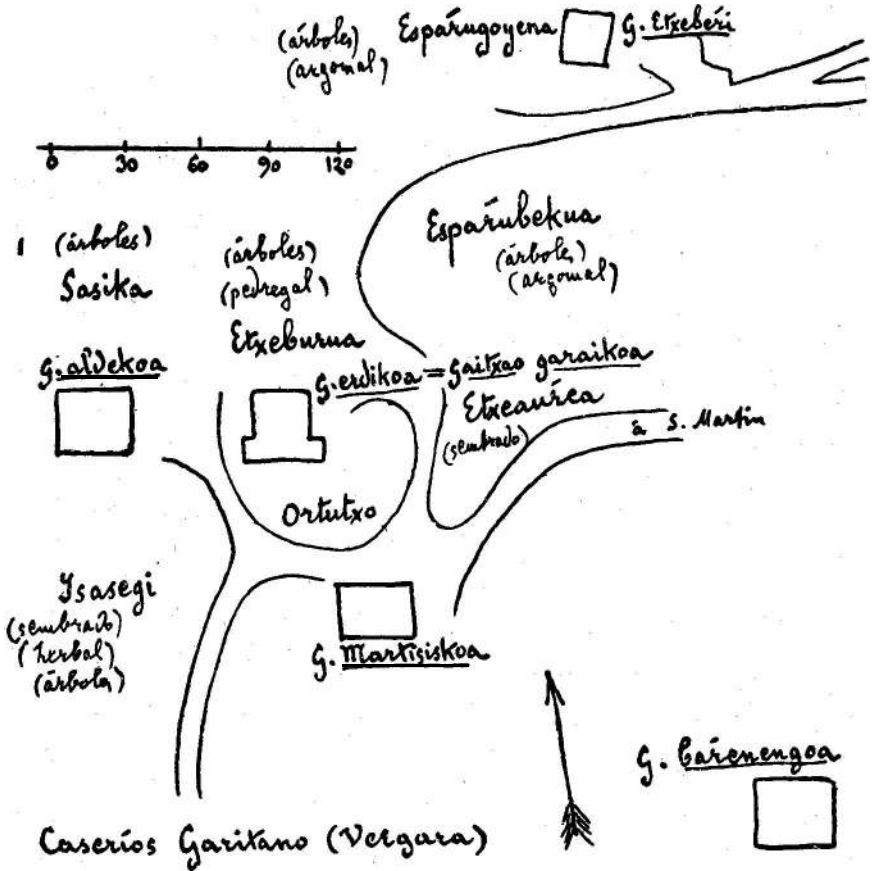 (árboles) Espárugoyena G. Etxebéri
(argomal)
0 30 60 90 120
Espárubekua
(árboles)
(argomal)
(árboles)
Sasika
(árboles)
(pedregal)
Etxeburua
G. aldekoa
G. erdikoa = Gaitxao garaikoa
Etxeaúrea
(sembrado)
a S. Martin
Ortutxo
Ysasegi
(sembrado)
(herbal)
(árboles)
G. Martisiskoa
G. Bárenengoa
Caseríos Garitano (Vergara)